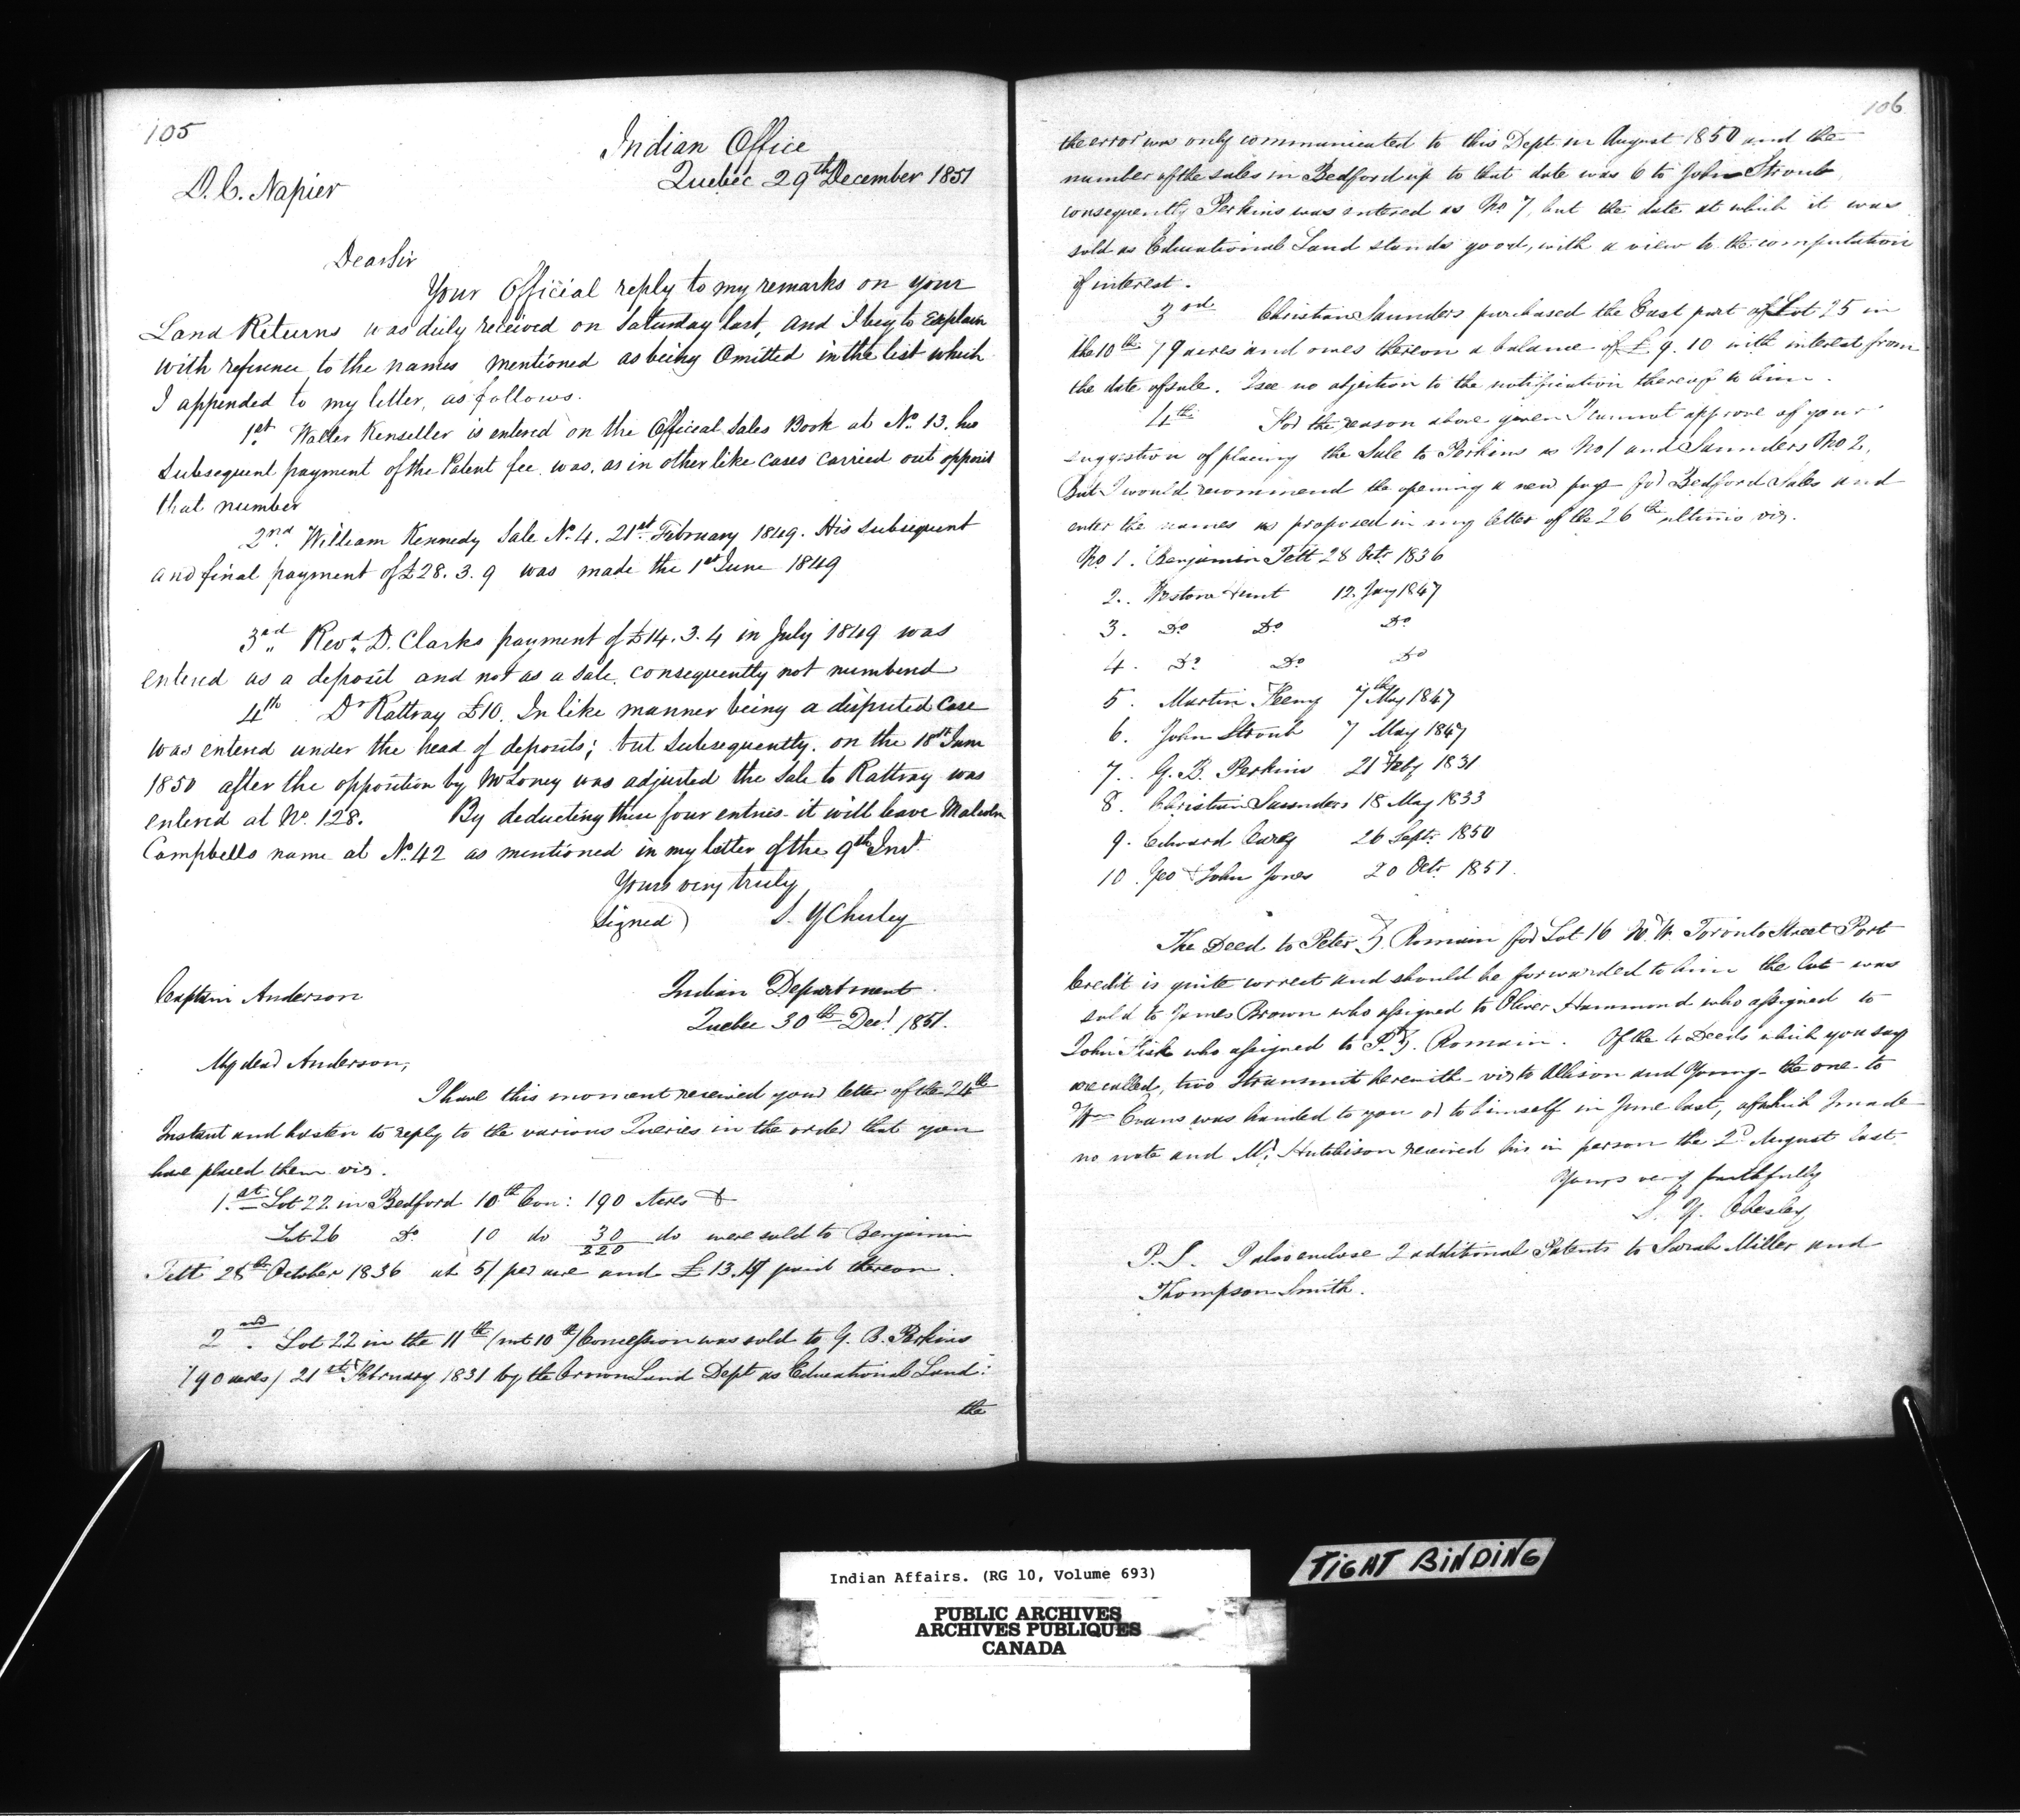 105
Indian Office
Quebec 29th December 1851
D. C. Napier
Dear Sir
Your Official reply to my remarks on your
Land Returns was duly received on Saturday last, and I beg to Explain
with reference to the names mentioned as being Omitted in the list which
I appended to my letter, as follows.
1st Walter Kenseller is entered on the Official Sales Book at No. 13. his
Subsequent payment of the Patent fee was, as in other like cases carried out opposit
that number
2nd William Kennedy Sale No. 4. 21st February 1849. His subsequent
and final payment of £28. 3. 9 was made the 1st June 1849
3rd Revd. D. Clarks payment of £14. 3. 4 in July 1849 was
entered as a deposit and not as a sale, consequently not numbered
4th Dr Rattray £10. In like manner being a disputed Case
was entered under the head of deposits; but subsequently. on the 18th June
1850 after the opposition by McLoney was adjusted the Sale to Rattray was
entered at No. 128. By deducting these four entries it will leave Malcolm
Campbells name at No. 42 as mentioned in my letter of the 9th Inst.
Yours very truly
Signed) S. Y Chesley
Captain Anderson
Indian Department
Quebec 30th Decr. 1851.
My dear Anderson,
I have this moment received your letter of the 24th
Instant and hasten to reply to the various Queries in the order that you
have placed them viz.
1.st Lot 22 in Bedford 10th Con: 190 Acres &
Lot 26 Do 10 do 30 do were sold to Benjamin
220
Tett 28th October 1836 at 5/ per acre and £13.15/ paid thereon.
2nd. Lot 22 in the 11th (not 10th) Concession was sold to G. B. Perkins
190 acres/ 21st February 1831 by the Crown Land Dept as Educational Land:
the
106
the error was only communicated to this Dept in August 1850 and the
number of the sales in Bedford up to that date was 6 to John Stroub,
consequently Perkins was entered as No. 7, but the date at which it was
sold as Educational Land stands good, with a view to the computation
of interest.
3rd Christian Saunders purchased the East part of Lot 25 in
the 10th 79 acres and owes thereon a balance of £9. 10 with interest from
the date of sale. I see no objection to the notification thereof to him.
4th For the reason above given I cannot approve of your
suggestion of placing the Sale to Perkins as No 1 and Saunders No 2,
But I would recommend the opening a new page for Bedford Sales and
enter the names as proposed in my letter of the 26th ultimo viz.
No. 1. Benjamin Tett 28 Octr. 1836
2. Hunt 12 Jany 1847
3. Do Do Do
4. Do Do Do
5. Martin Feeny 7th May 1847
6. John Stroub 7 May 1847
7. G. B. Perkins 21 Feby 1831
8. Christian Saunders 18 May 1833
9. Edward Carey 26 Sept. 1850
10. Geo & John Jones 20 Octr. 1851.
The Deed to Peter F. Romain for Lot 16 N. W. Toronto Street Port
Credit is quite correct and should be forwarded to him the lot was
sold to James Brown who assigned to Oliver Hammond who assigned to
John Fisk who assigned to P. F. Romain. Of the 4 Deeds which you say
are called, two I transmit herewith - viz to Allison and Young - the one to
Wm Evans was handed to you or to himself in June last, of which I made
no note and Mr. Hutchison received his in person the 2d August last.
Yours very faithfully
S. Y. Chesley
P.S. I also enclose 2 additional Patents to Sarah Miller and
Thompson Smith.
Indian Affairs. (RG 10, Volume 693)
PUBLIC ARCHIVES
ARCHIVES PUBLIQUES
CANADA
TIGHT BINDING